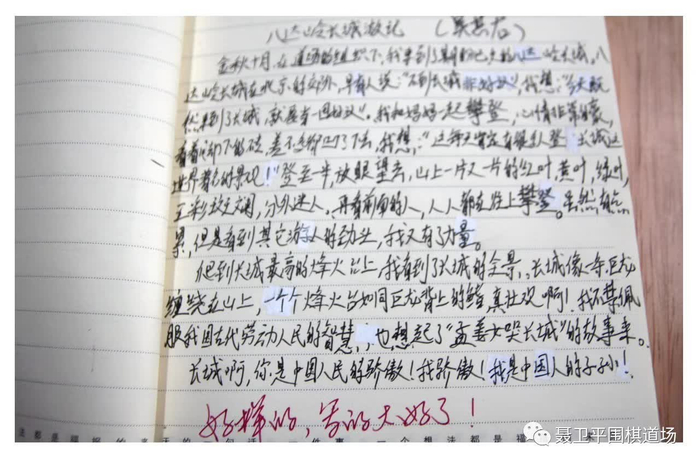 八达岭长城游记（吴宸右）
金秋十月，在道场的组织下，我来到了期盼已久的八达岭长城。八
达岭长城在北京的郊外，早有人说：“不到长城非好汉”，我想：“今天既
然来到了长城，就要当一回好汉”。我和妈妈一起攀登，心情非常激动，
看着脚下的砖，差不多都凹了下去，我想：“这每天肯定有很多人登 长城这
世界著名的景观！”登至一半，放眼望去，山上一片又一片的红叶，黄叶，绿叶，
五彩斑斓，分外迷人。再看前面的人，人人都在往上攀登。虽然有点
累，但是看到其它游人的劲头，我又有了力量。
爬到长城最高的烽火台上，我看到了长城的全景。长城像一条巨龙
缠绕在山上，一个个烽火台如同巨龙背上的鳍 真壮观啊！我不禁佩
服我国古代劳动人民的智慧，也想起了“孟姜女哭长城”的故事来。
长城啊，你是中国人民的骄傲！我骄傲！我是中国人的子孙！
好样的，写的太好了！
聂卫平围棋道场